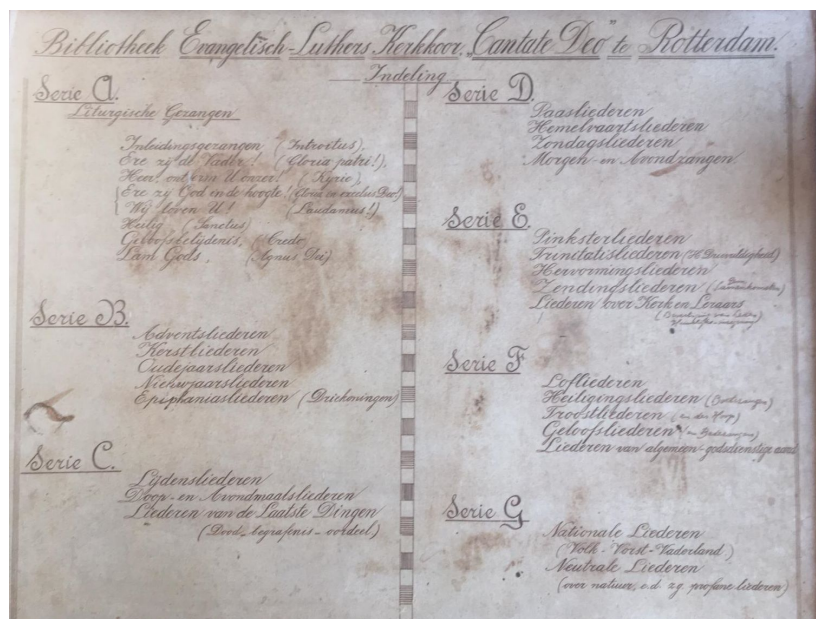 Bibliotheek Evangelisch-Luthers Kerkkoor „Cantate Deo" te Rotterdam.
Indeling
Serie A.
Liturgische Gezangen
Inleidingsgezangen (Introitus),
Ere zij de Vader! (Gloria patri!),
Heer, ontferm U onzer! (Kyrie),
Ere zij God in de hoogte! (Gloria in excelsis Deo!)
Wij loven U! (Laudamus!)
Heilig (Sanctus)
Geloofsbelijdenis, (Credo)
Lam Gods, (Agnus Dei)
Serie B.
Adventsliederen
Kerstliederen
Oudejaarsliederen
Nieuwjaarsliederen
Epiphaniasliederen (Driekoningen)
Serie C.
Lijdensliederen
Doop- en Avondmaalsliederen
Liederen van de Laatste Dingen
(Dood - begrafenis - oordeel)
Serie D.
Paasliederen
Hemelvaartsliederen
Zondagsliederen
Morgen- en Avondzangen
Serie E.
Pinksterliederen
Trinitatisliederen (H. Drievuldigheid)
Hervormingsliederen
Zendingsliederen
Liederen over Kerk en Leraars
Serie F
Lofliederen
Heiligingsliederen
Troostliederen (en der Hoop)
Geloofsliederen
Liederen van algemeen-godsdienstige aard
Serie G
Nationale Liederen
(Volk - Vorst - Vaderland)
Neutrale Liederen
(over natuur, e.d. z.g. profane liederen)